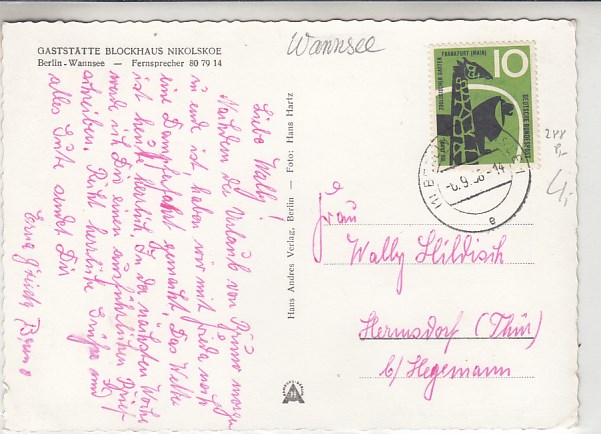 GASTSTÄTTE BLOCKHAUS NIKOLSKOE
Berlin-Wannsee — Fernsprecher 80 79 14
Wannsee
Liebe Wally!
Nachdem die Urlaub von Bruno morgen
zu ende ist, haben wir mit Frieda noch
eine Dampferfahrt gemacht. Das Wetter
ist heute herrlich. In der nächsten Woche
werde ich Dir einen ausführlichen Brief
schreiben. Recht herzliche Grüße und
alles Gute sendet Dir
Bruno
Hans Andres Verlag, Berlin — Foto: Hans Hartz
ZOOLOGISCHER GARTEN
FRANKFURT (MAIN)
10
DEUTSCHE BUNDESPOST
-6.9.58-14
e
Frau
Wally Hildisch
Hermsdorf (Thür)
b/Hegemann
4,-